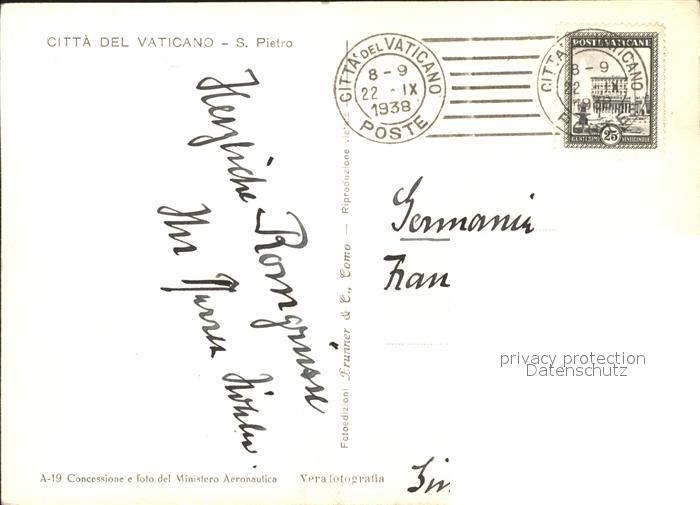 CITTÀ DEL VATICANO – S. Pietro
CITTÀ DEL VATICANO
8 – 9
22 · IX
1938
POSTE
CITTÀ VATICANO
8 – 9
22 IX
POSTE VATICANE
CENTESIMI 25 VENTICINQUE
Herzliche Romgrüsse
Ihr Pfarrer Köhler.
Fotoedizioni Brunner & C., Como — Riproduzione vietata
Germania
Frau
privacy protection
Datenschutz
A-19 Concessione e foto del Ministero Aeronautica Vera fotografia